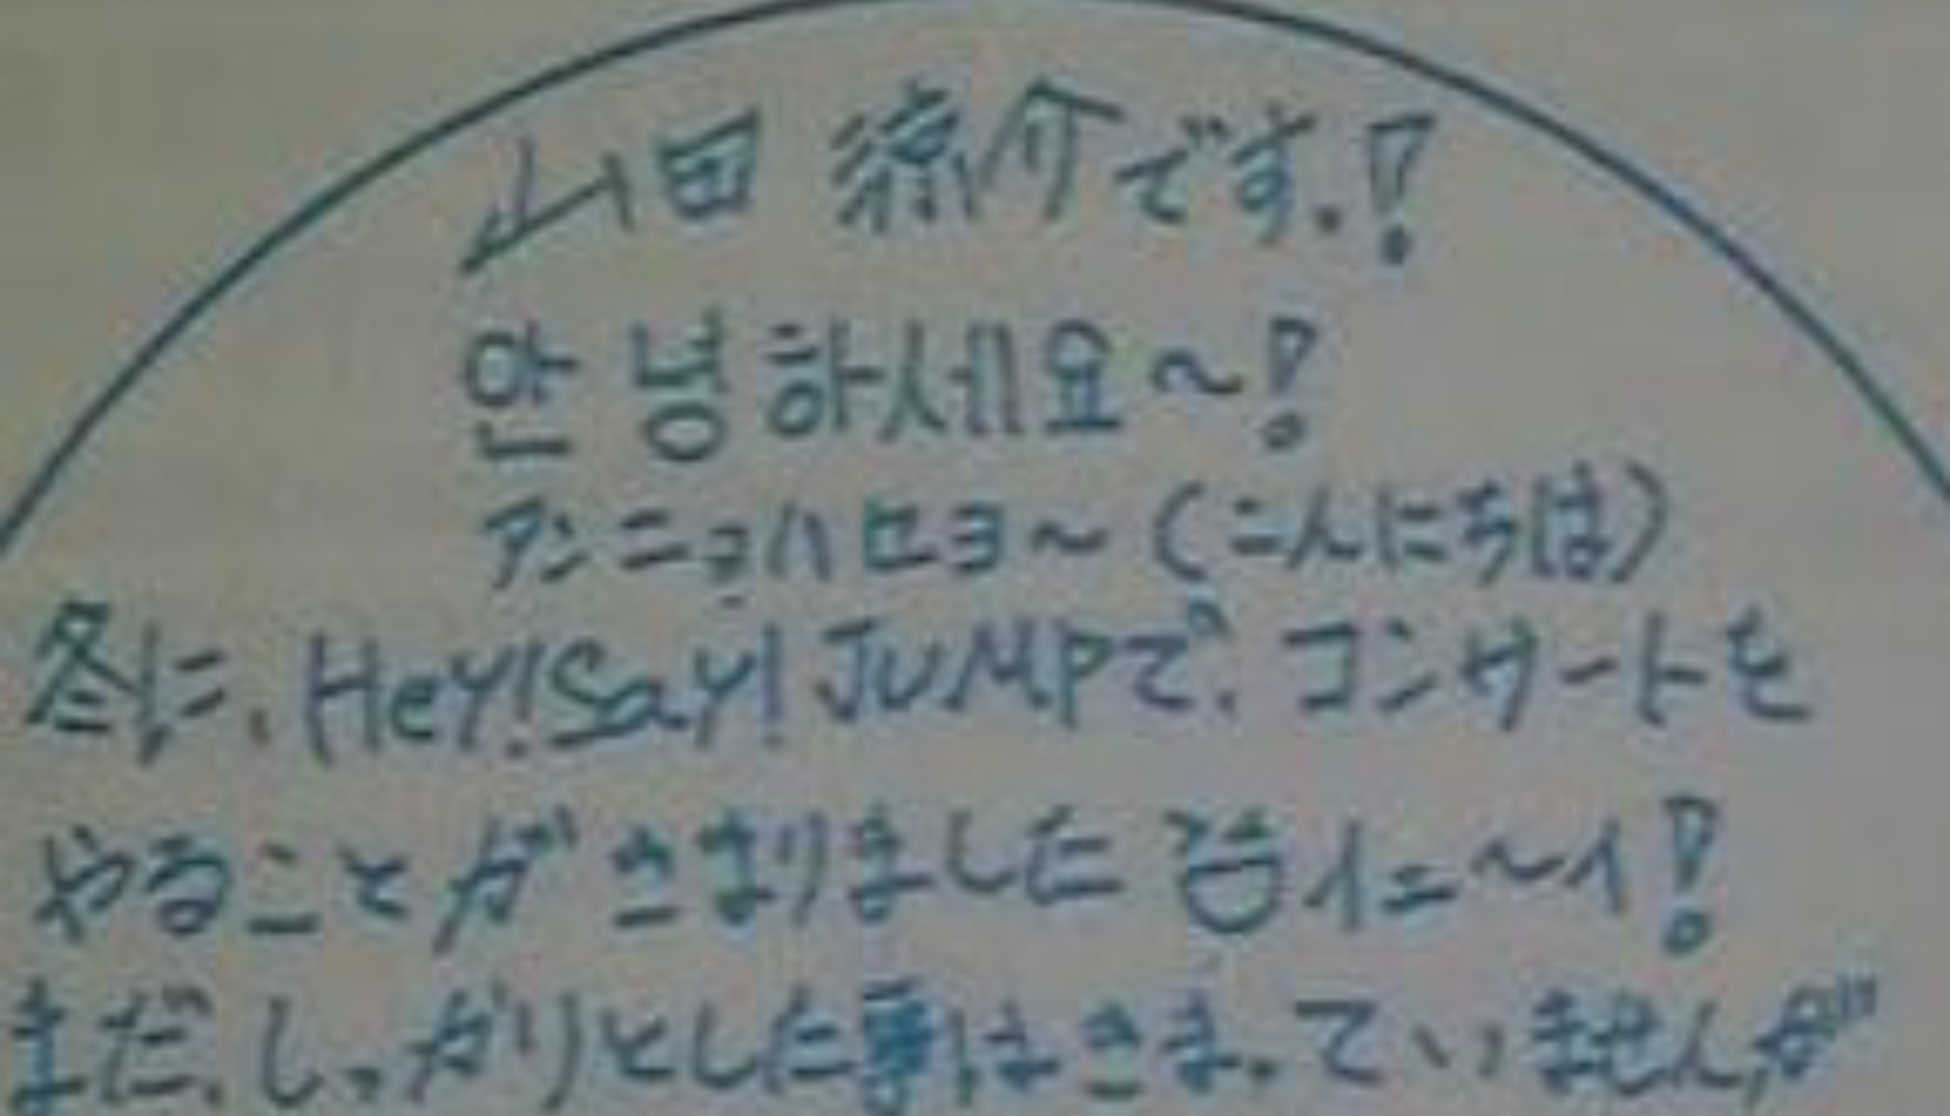 山田 涼介です.!
안녕하세요~!
アンニョハセヨ~(こんにちは)
冬に、Hey!Say!JUMPで、コンサートを
やることがきまりました イエ~イ!
まだ、しっかりとした事はきまっていませんが